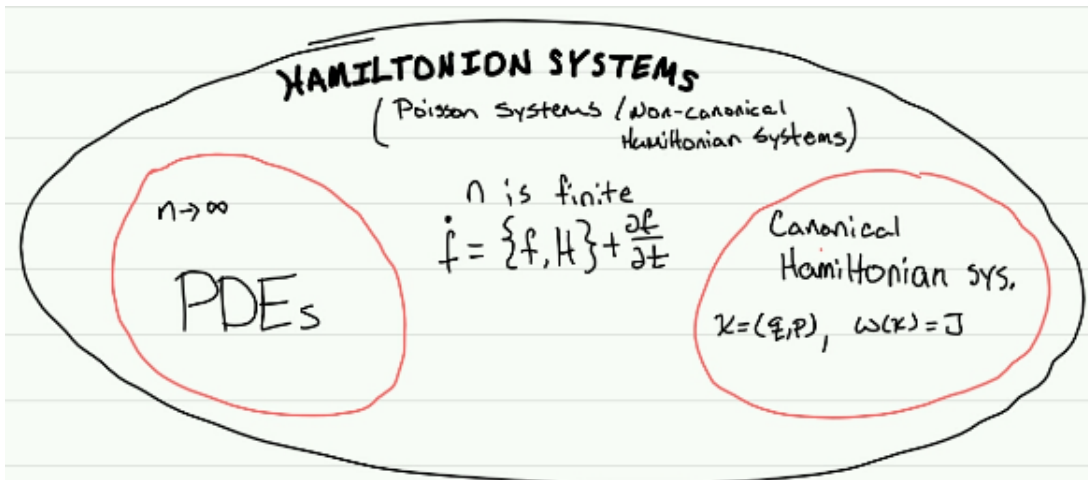 HAMILTONION SYSTEMS
(Poisson Systems / Non-canonical
Hamiltonian Systems)
n → ∞
PDEs
n is finite
ḟ = {f, H} + ∂f/∂t
Canonical
Hamiltonian sys.
x = (q, p), ω(x) = J